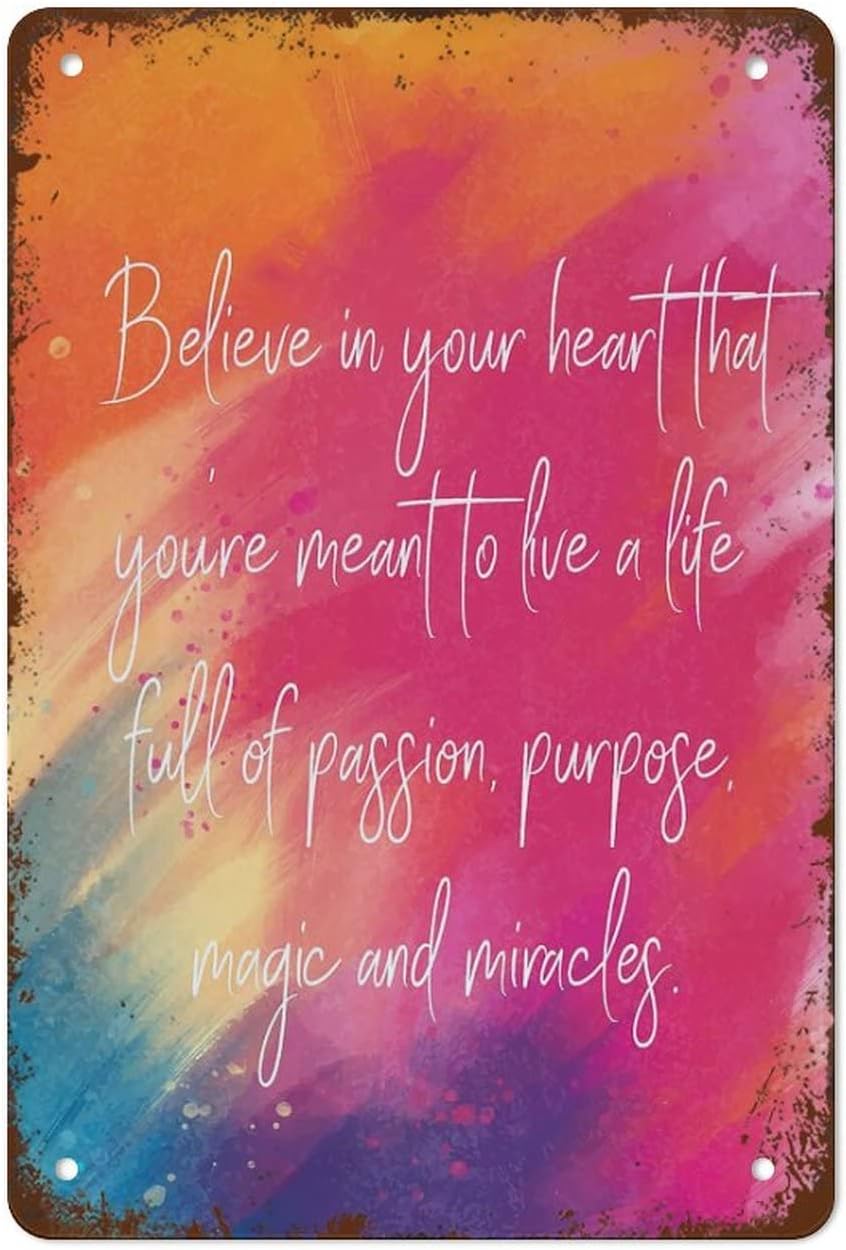 Believe in your heart that
you're meant to live a life
full of passion, purpose,
magic and miracles.